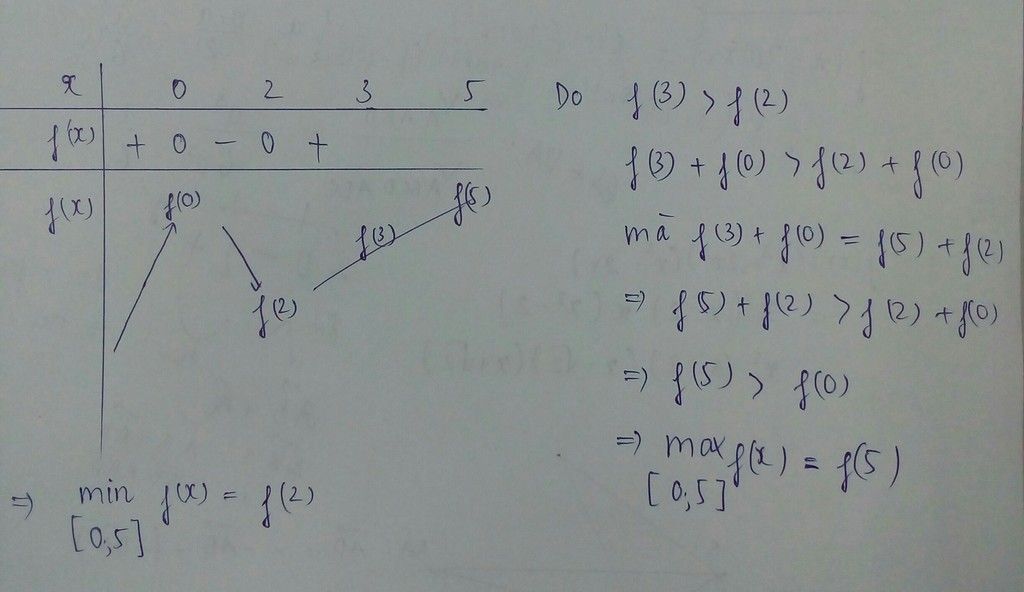 x 0 2 3 5
f(x) + 0 - 0 +
f(x) f(0) f(2) f(3) f(5)
=> min f(x) = f(2)
[0;5]
Do f(3) > f(2)
f(3) + f(0) > f(2) + f(0)
mà f(3) + f(0) = f(5) + f(2)
=> f(5) + f(2) > f(2) + f(0)
=> f(5) > f(0)
=> max f(x) = f(5)
[0;5]